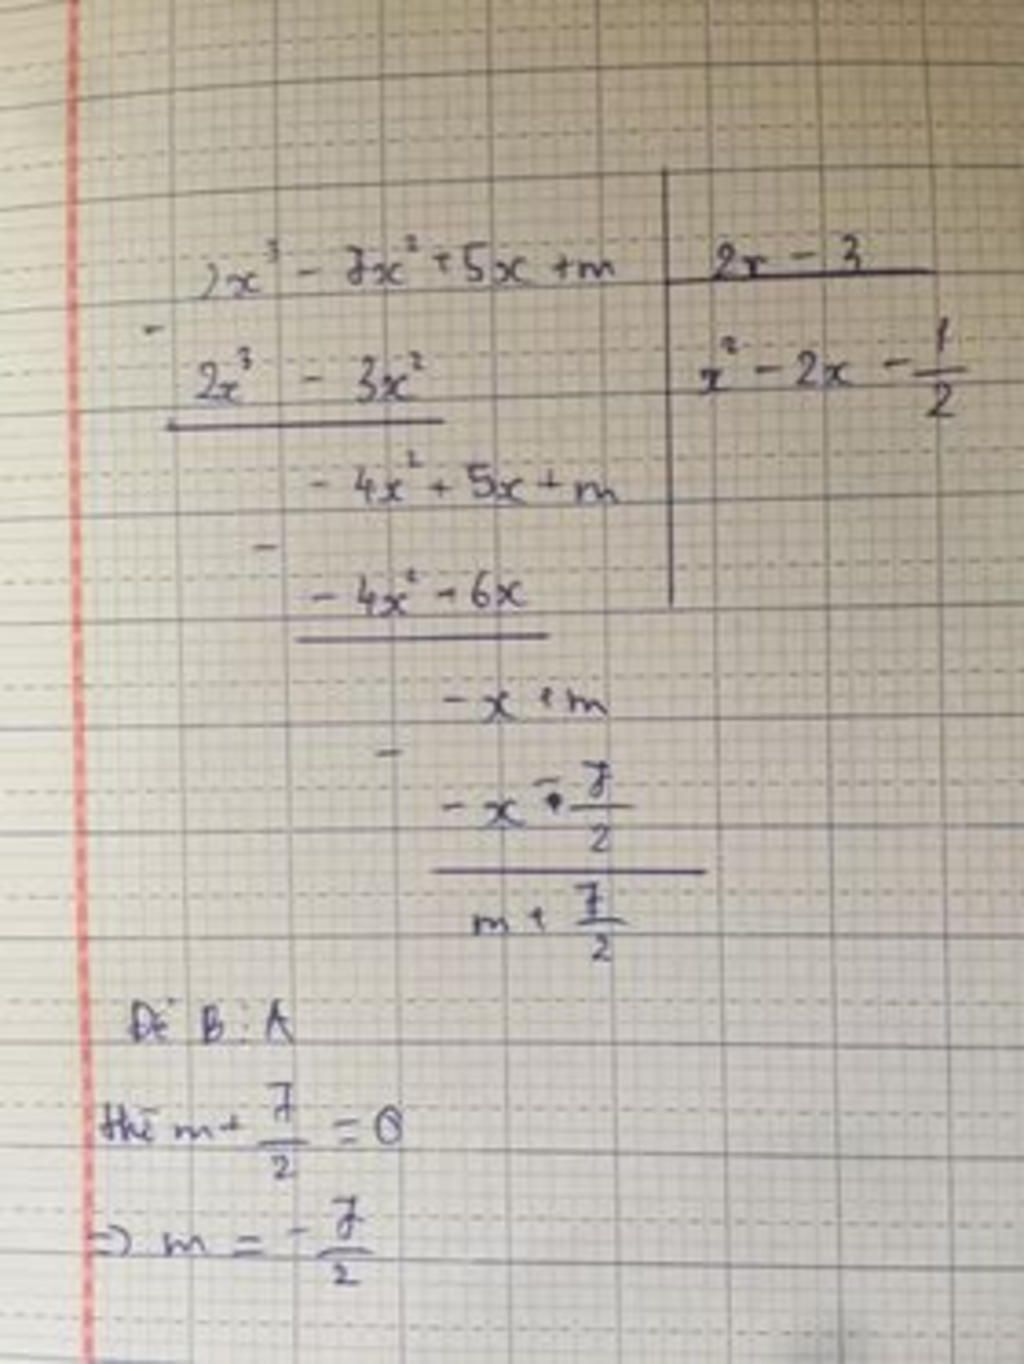 2x³ - 7x² + 5x + m | 2x - 3
-
2x³ - 3x² | x² - 2x - 1/2
- 4x² + 5x + m
-
- 4x² - 6x
- x + m
-
- x - 7/2
m + 7/2
Để B : A
thì m + 7/2 = 0
=> m = - 7/2